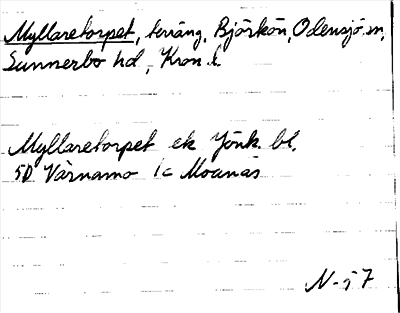 Myllaretorpet, terräng, Björkön, Odensjö sn,
Sunnerbo hd, Kron. l.
Myllaretorpet ek Jönk. bl.
5D Värnamo 1c Moanäs
N-57